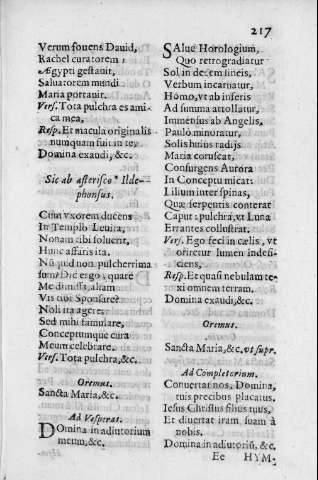 217
Verum fouens Dauid,
Rachel curatorem
Ægypti gestauit,
Saluatorem mundi
Maria portauit.
Vers. Tota pulchra es ami-
ca mea,
Resp. Et macula originalis
numquam fuit in te,
Domina exaudi, &c.
Sic ab asterisco * Ilde-
phonsus.
Cum vxorem ducens
In Templo Leuita,
Nonam tibi soluerit,
Hunc affaris ita.
Nũ quid non pulcherrima
sum? Dic ergo: quare
Me dimissa, aliam
Vis tibi Sponsare?
Noli ita agere:
Sed mihi famulare,
Conceptumque cura
Meum celebrare.
Vers. Tota pulchra, &c.
Oremus.
Sancta Maria, &c.
Ad Vesperas.
Domina in adiutorium
meum, &c.
SAlue Horologium,
Quo retrogradiatur
Sol in decem lineis,
Verbum incarnatur,
Homo, vt ab inferis
Ad summa attollatur,
Immensus ab Angelis,
Paulò minoratur,
Solis huius radijs
Maria coruscat,
Consurgens Aurora
In Conceptu micat:
Lilium inter spinas,
Quæ serpentis conterat
Caput: pulchra, vt Luna
Errantes collustrat.
Vers. Ego feci in cælis, vt
oriretur lumen indefi-
ciens,
Resp. Et quasi nebulam te-
xi omnem terram.
Domina exaudi, &c.
Oremus.
Sancta Maria, &c. vt supr.
Ad Completorium.
Conuertat nos, Domina,
tuis precibus placatus,
Iesus Christus filius tuus,
Et diuertat iram suam à
nobis.
Domina in adiutoriũ, &c.
Ee HYM-